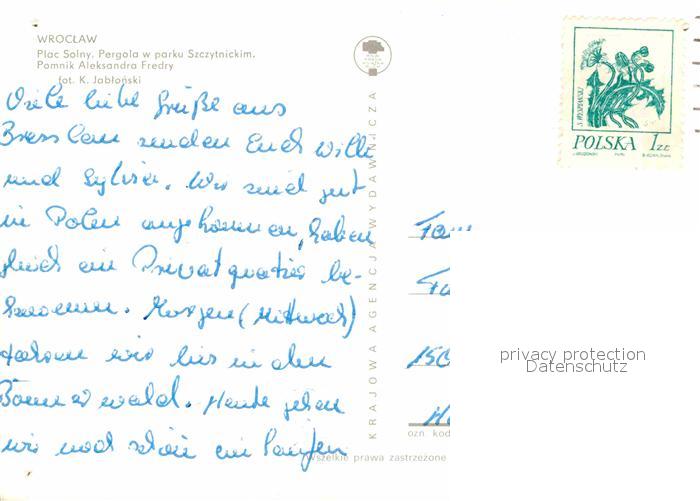 WROCŁAW
Plac Solny. Pergola w parku Szczytnickim.
Pomnik Aleksandra Fredry
fot. K. Jabłoński
Viele liebe Grüße aus
Breslau senden Euch Willi
und Sylvia. Wir sind gut
in Polen angekommen, haben
gleich ein Privatquartier be-
kommen. Morgen (Mittwoch)
fahren wir bis in den
wald. Heute gehen
wir noch schön ein
KRAJOWA AGENCJA WYDAWNICZA
S. WYSPIAŃSKI
POLSKA 1 ZŁ
Fa...
150
privacy protection
Datenschutz
ozn kod
Wszelkie prawa zastrzeżone